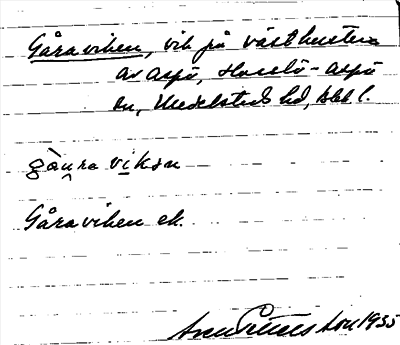 Gåraviken, vik på västkusten
av Aspö, Hasslö-Aspö
sn, Medelstads hd, Blek l.
gåura vikən
Gåraviken ek.
Sven Benson 1935